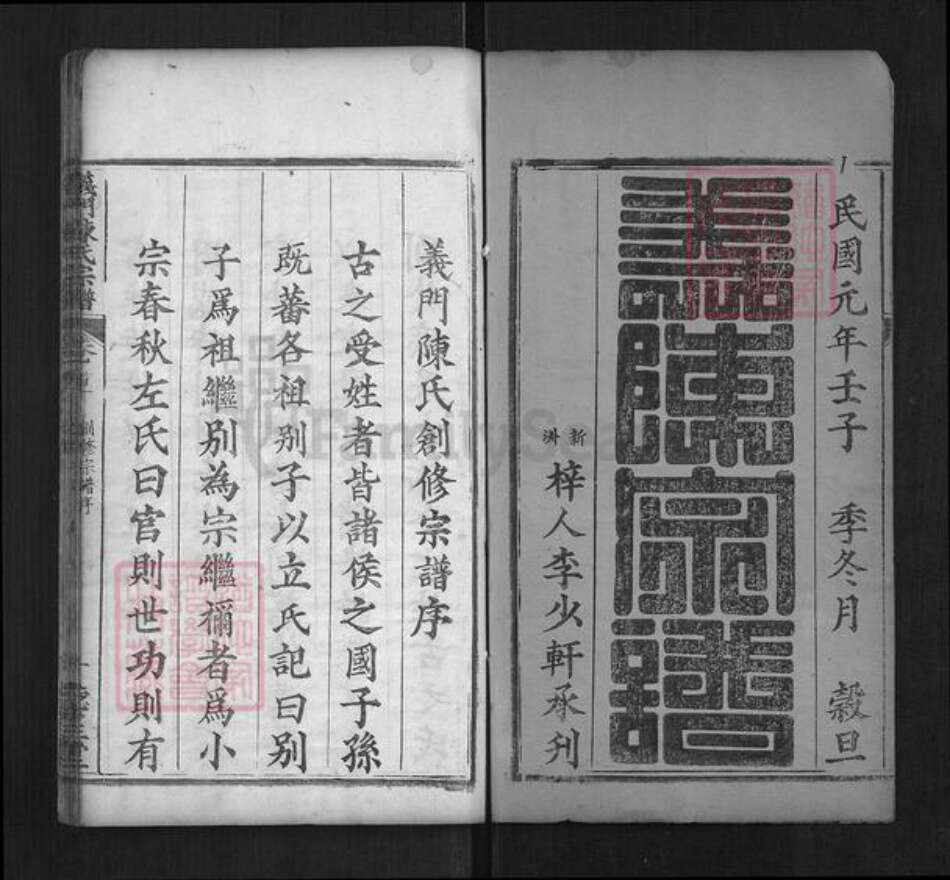 民國元年壬子 季冬月 穀旦
陳宗譜
新洲
梓人李少軒承刋
義門陳氏創修宗譜序
古之受姓者皆諸侯之國子孫
既蕃各祖別子以立氏記曰別
子爲祖繼別為宗繼禰者爲小
宗春秋左氏曰官則世功則有
義門陳氏宗譜
創修宗譜序
FamilySea